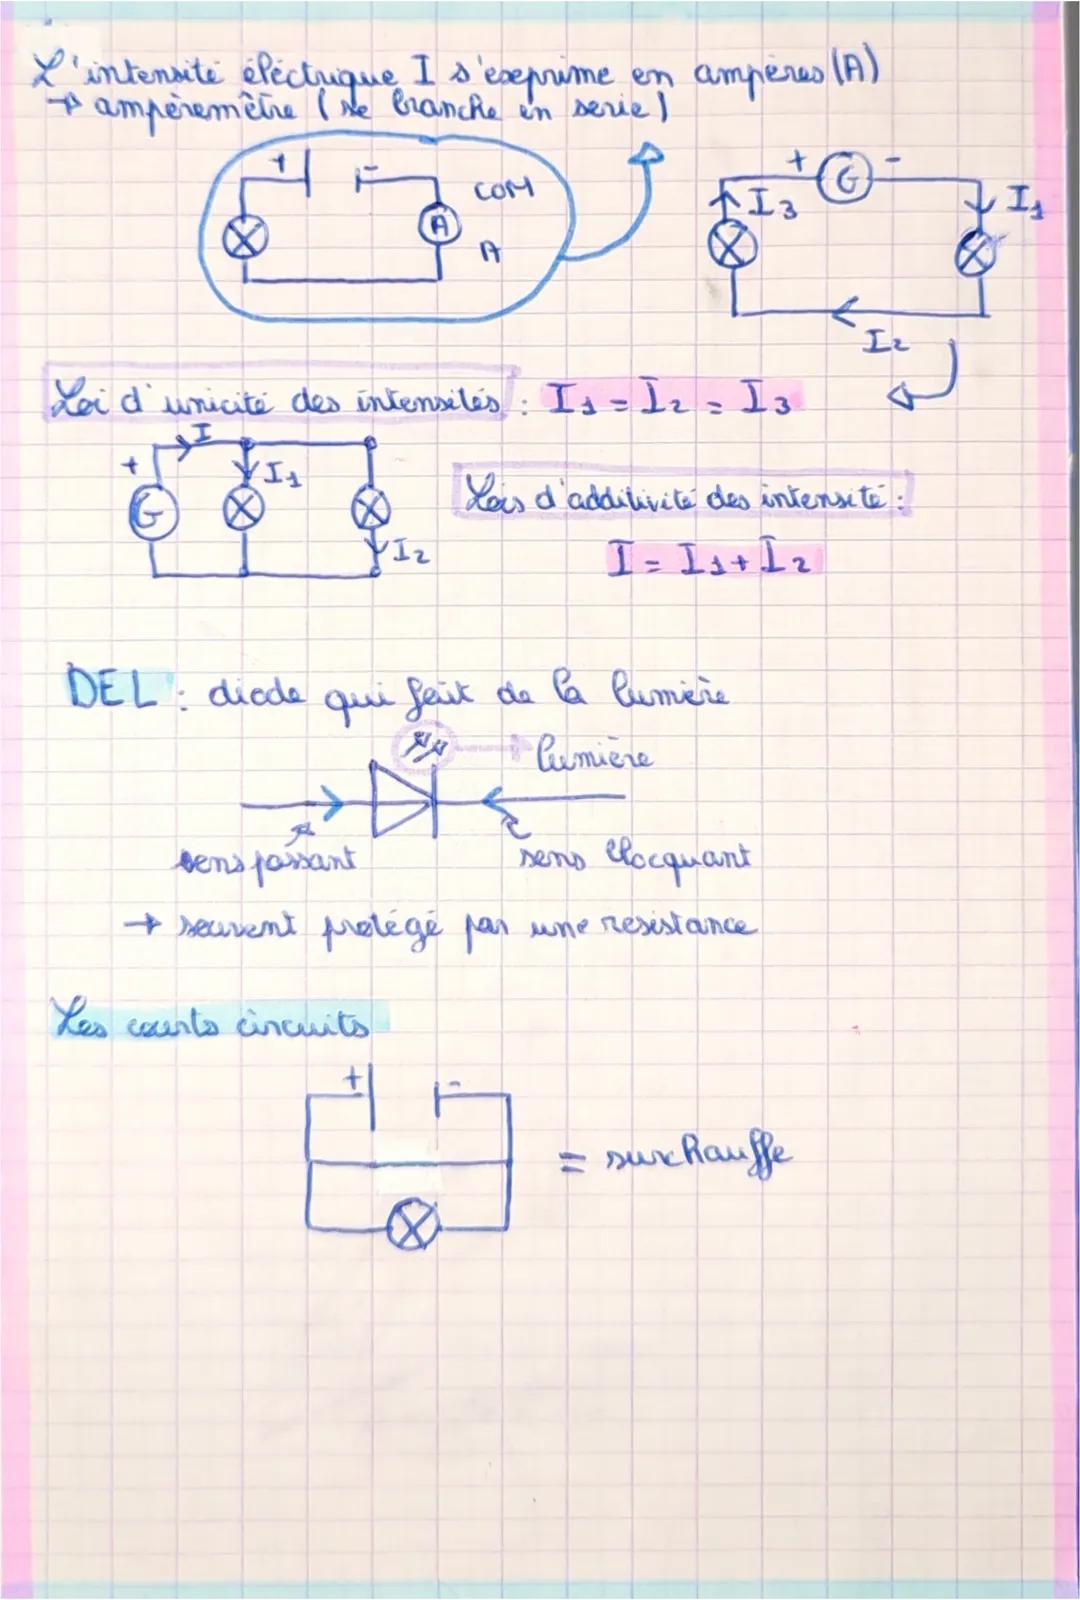 L'intensité éléctrique I s'exeprime en ampères (A)
→ ampèremêtre (se branche en serie)
+ -
COM
A
A
+ G -
I3
I1
I2
Loi d'unicité des intensités : I1 = I2 = I3
I
+
I1
G
I2
Lois d'additivité des intensité :
I = I1 + I2
DEL : diode qui fait de la lumière
lumière
sens passant
sens blocquant
→ souvent protégé par une resistance
Les courts circuits
+ -
= surchauffe